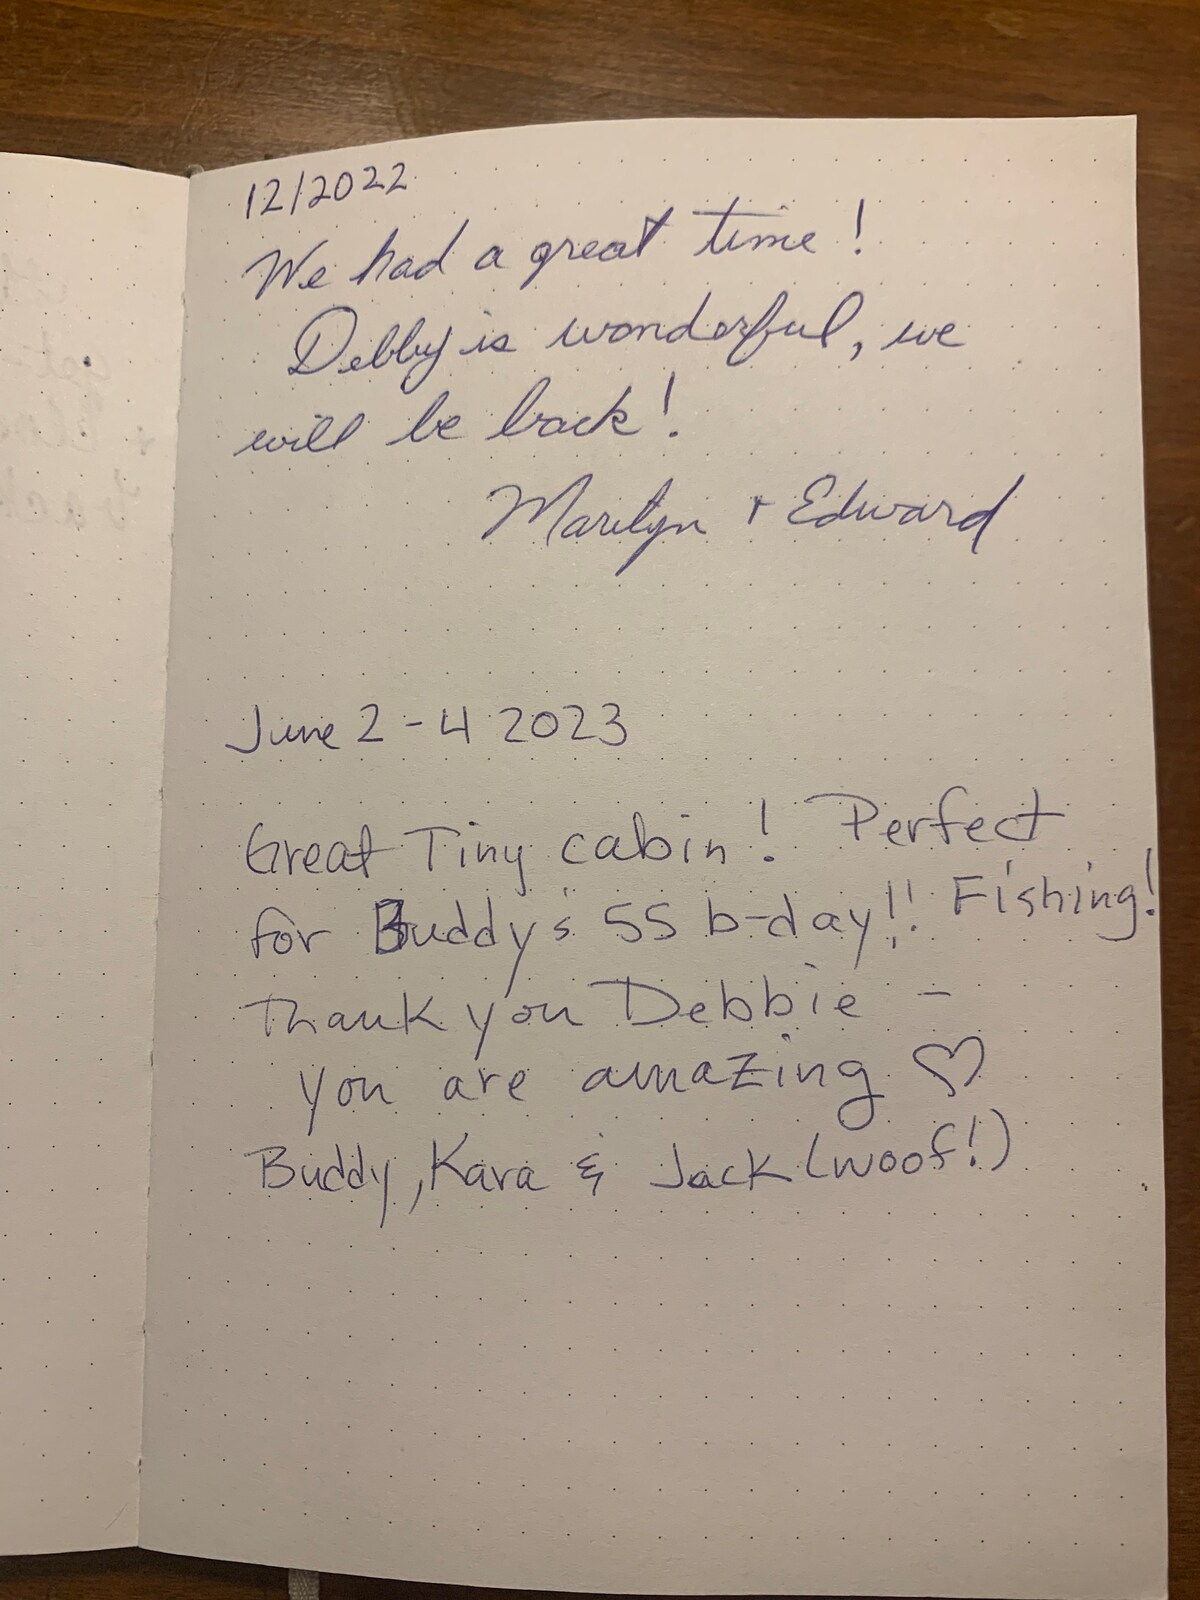 12/2022
We had a great time!
Debby is wonderful, we
will be back!
Marilyn + Edward
June 2-4 2023
Great Tiny cabin! Perfect
for Buddy's 55 b-day!! Fishing!
Thank you Debbie -
you are amazing ♡
Buddy, Kara & Jack (woof!)